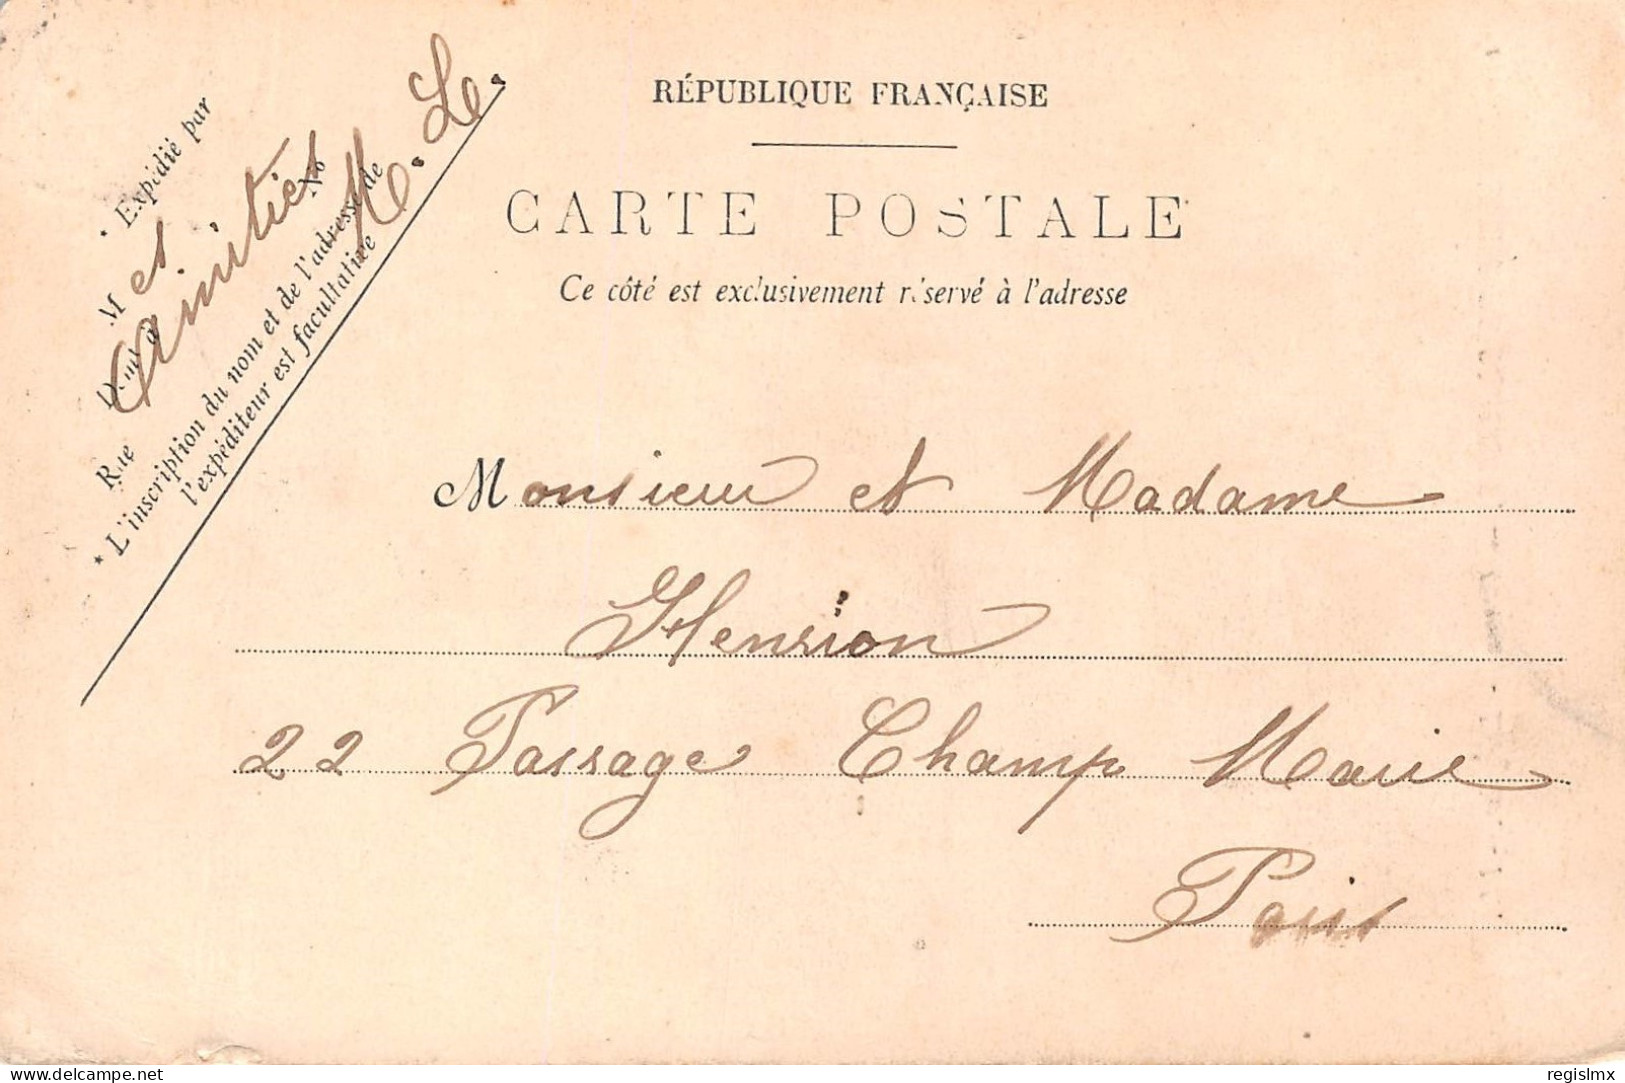 RÉPUBLIQUE FRANÇAISE
CARTE POSTALE
Ce côté est exclusivement réservé à l'adresse
* Expédié par
M et
Amitiés
M. L.
Rue No
* L'inscription du nom et de l'adresse de
l'expéditeur est facultative
Monsieur et Madame
Henrion
22 Passage Champ Marie
Paris
delcampe.net
regislmx